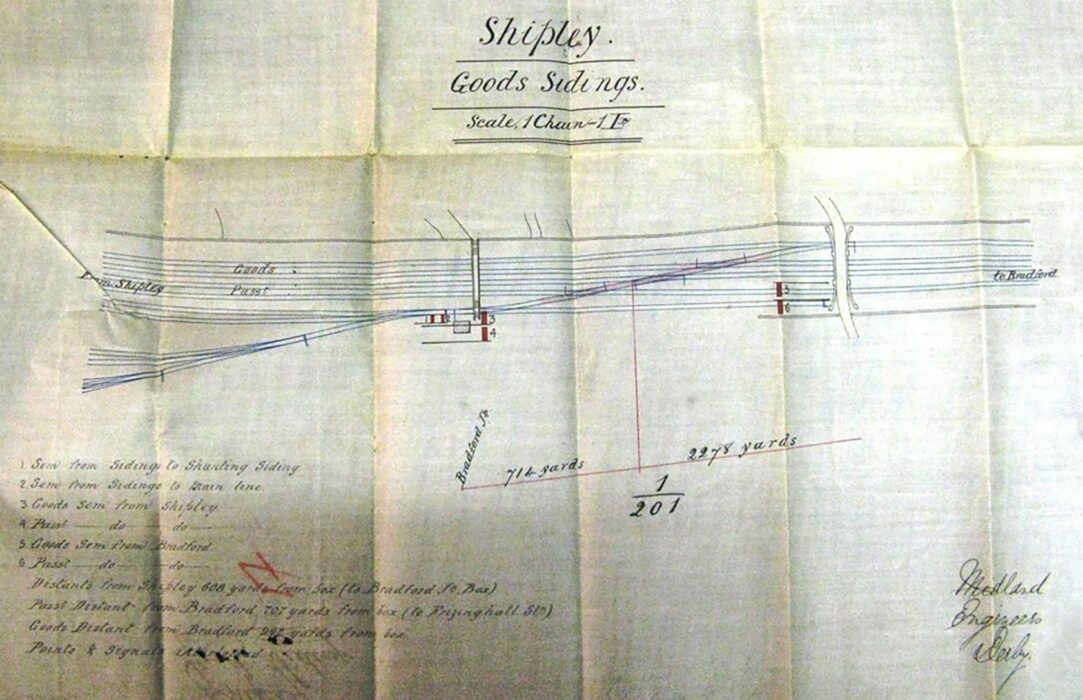 Shipley.
Goods Sidings.
Scale, 1 Chain = 1 In
Goods
From Shipley
Passr
to Bradford
2
3
4
5
6
Bradford Jn
714 yards
2278 yards
1
201
1 Sem from Sidings to Shunting Siding
2 Sem from Sidings to Main line.
3 Goods Sem from Shipley
4 Passr — do — do —
5 Goods Sem from Bradford
6 Passr — do — do —
Distants from Shipley 608 yards from box (to Bradford Jn Box)
Passr Distant from Bradford 707 yards from box (to Frizinghall Stn)
Goods Distant from Bradford yards from box
Points & Signals
Midland
Engineers
Derby.